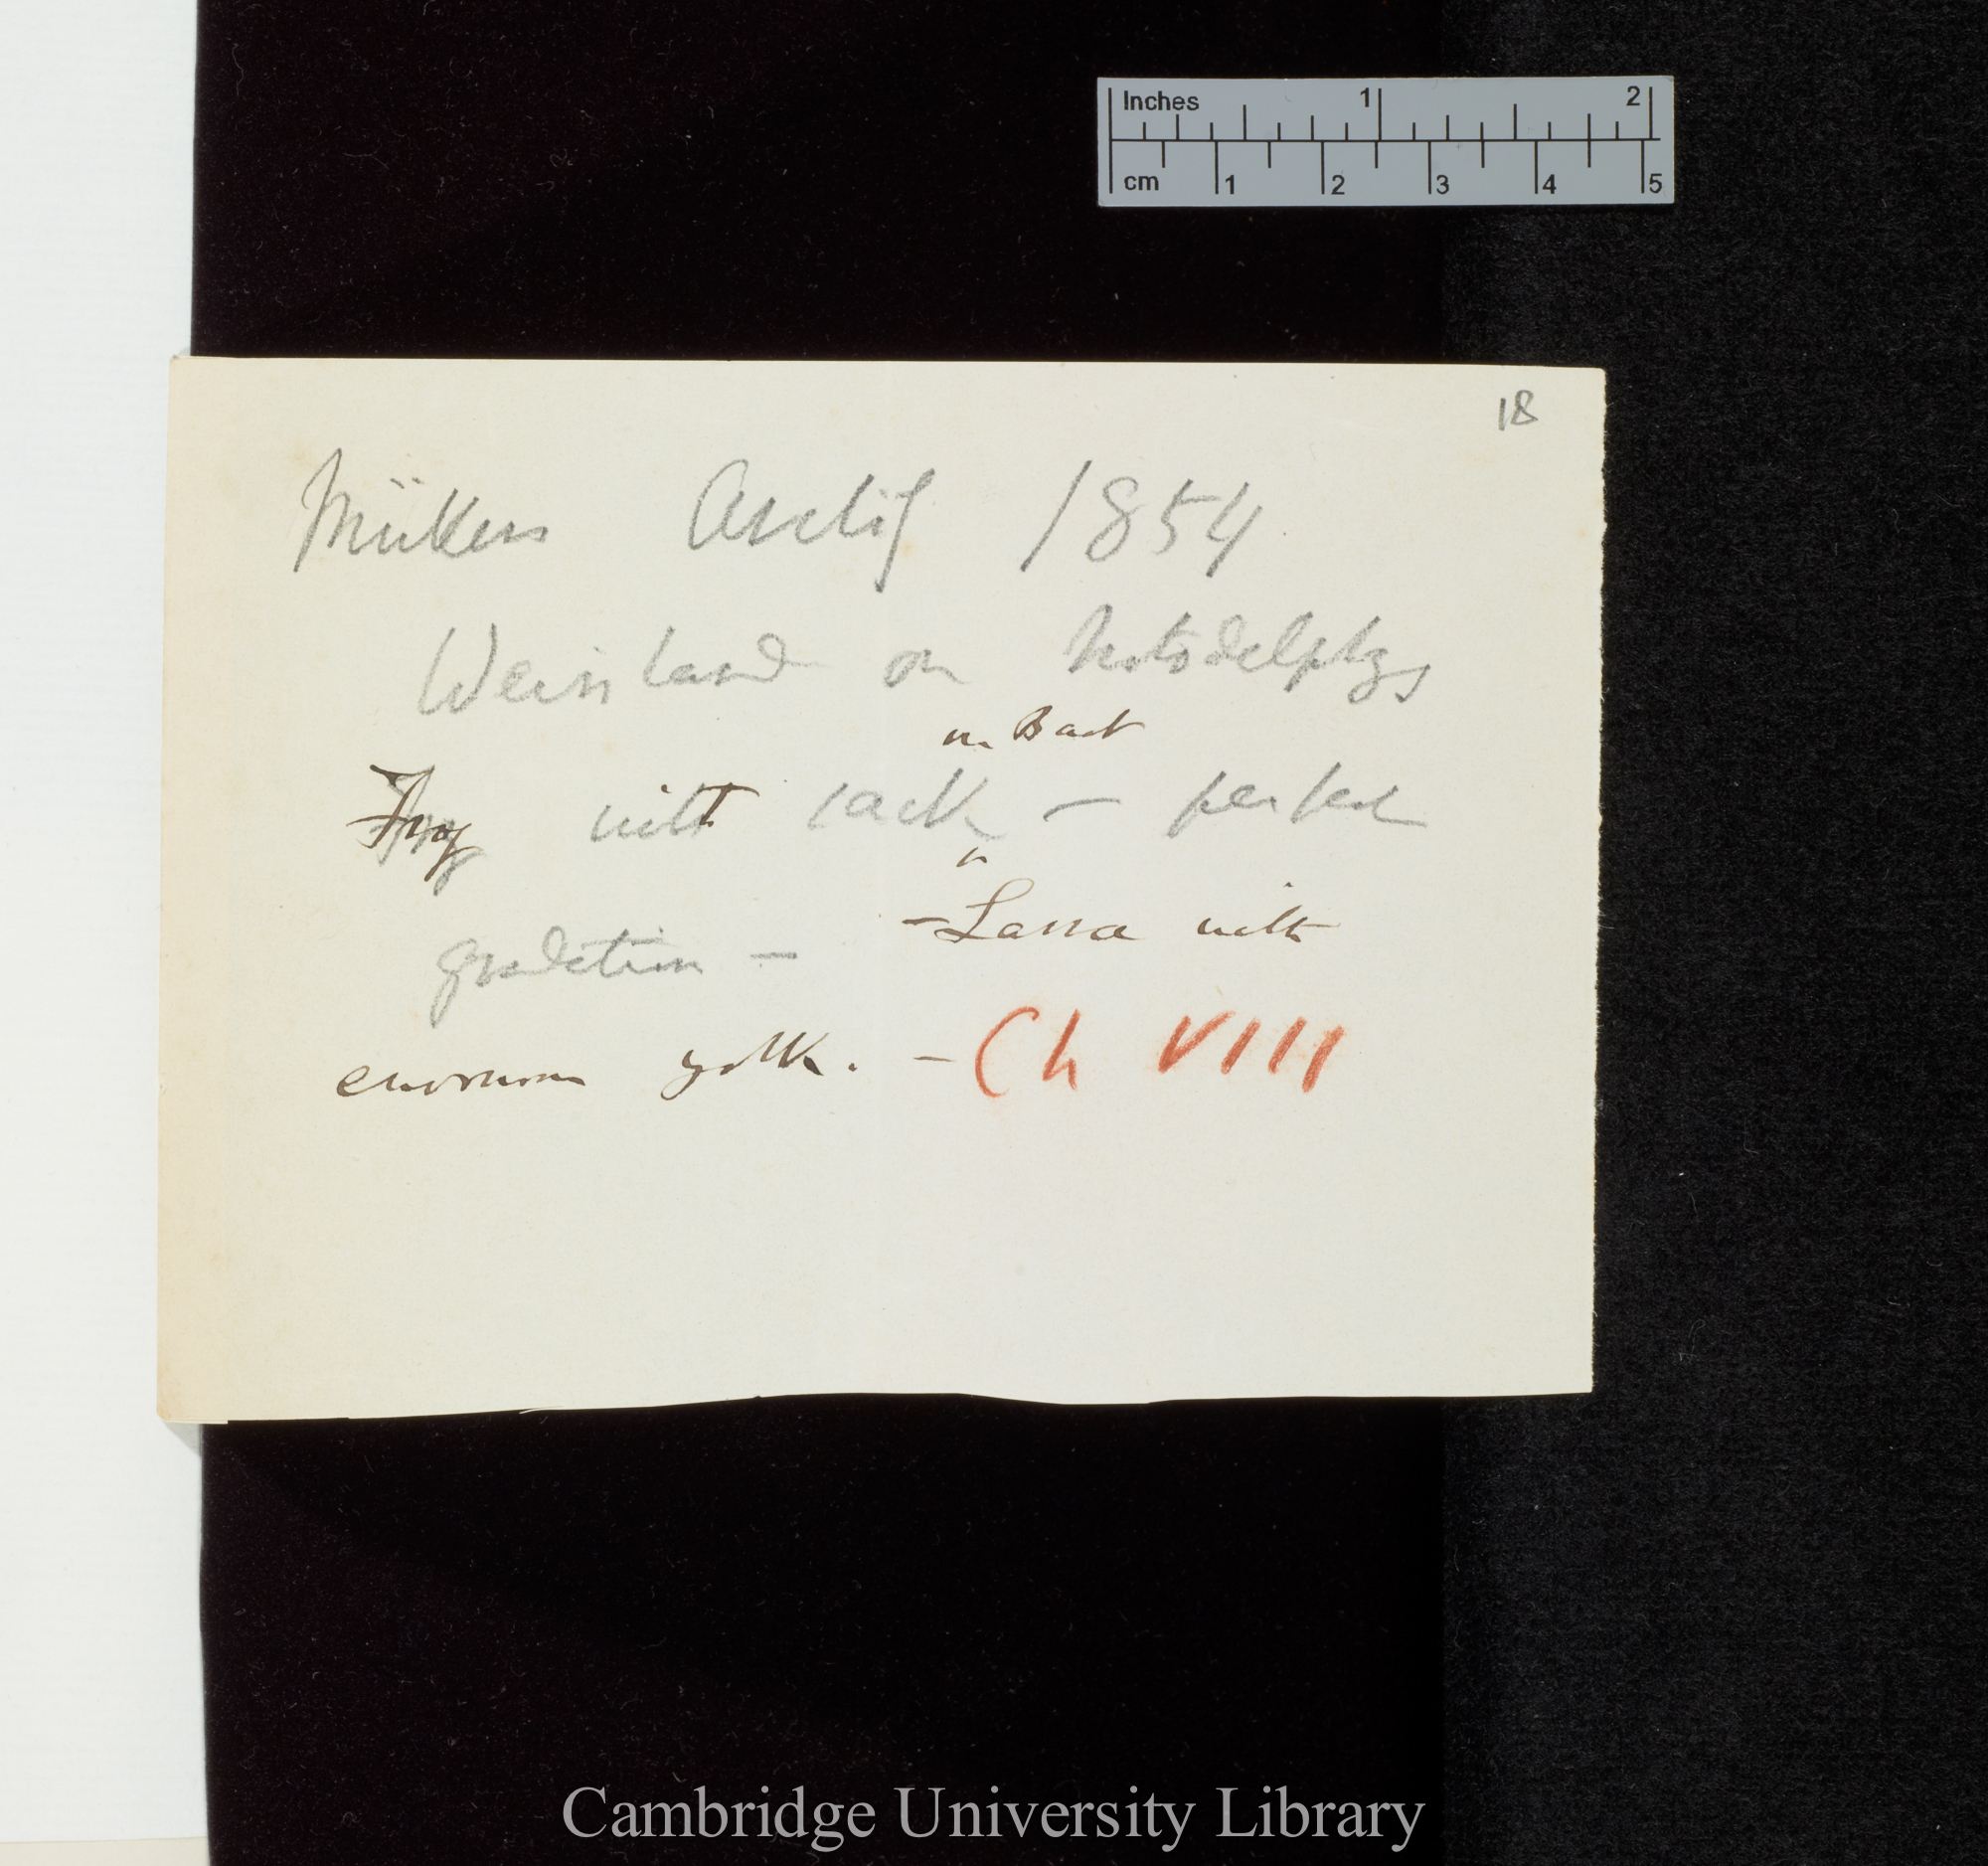 Inches 1 2
cm 1 2 3 4 5
18
Müllers Archif 1854
Weinland on Notodelphys
on Back
Frog with sack ^ – perfect
gradation – – Larva with
enormous yolk. – Ch VIII
Cambridge University Library